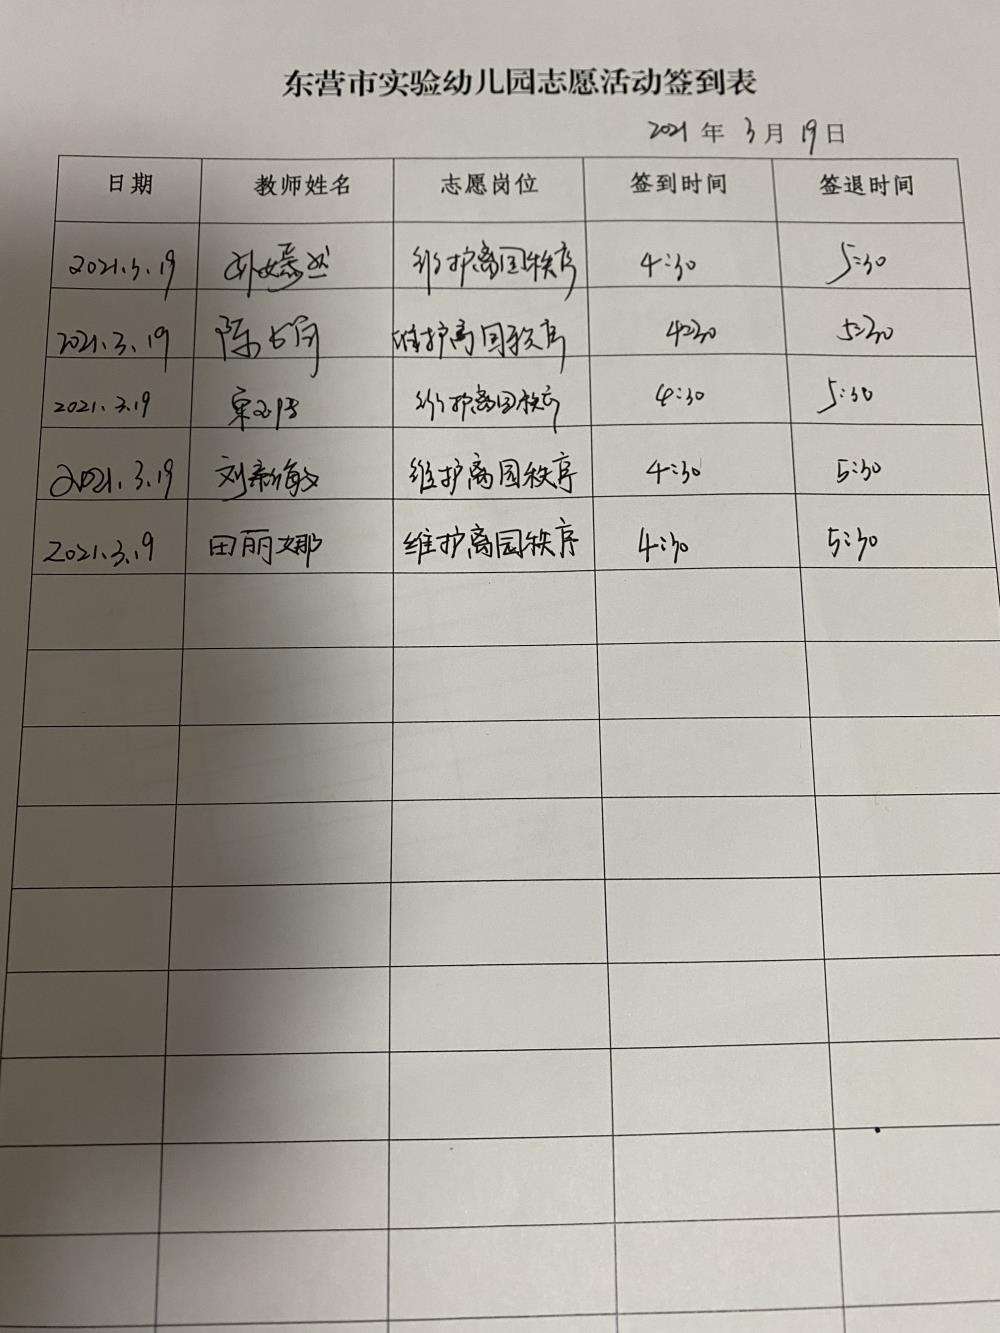 东营市实验幼儿园志愿活动签到表
2021 年 3 月 19 日
日期 教师姓名 志愿岗位 签到时间 签退时间
2021.3.19 维护离园秩序 4:30 5:30
2021.3.19 陈 维护离园秩序 4:30 5:30
2021.3.19 维护离园秩序 4:30 5:30
2021.3.19 刘新敏 维护离园秩序 4:30 5:30
2021.3.19 田丽娜 维护离园秩序 4:30 5:30